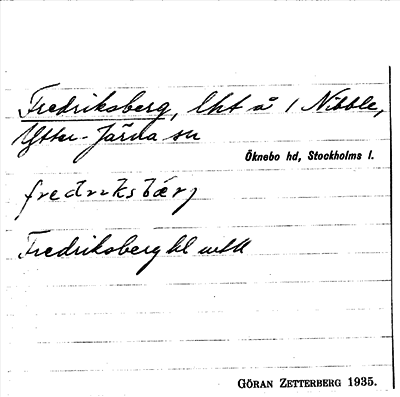 Fredriksberg, lht å 1 Nibble,
Ytter-Järna sn
Öknebo hd, Stockholms l.
fredriksbærj
Fredriksberg
GÖRAN ZETTERBERG 1935.